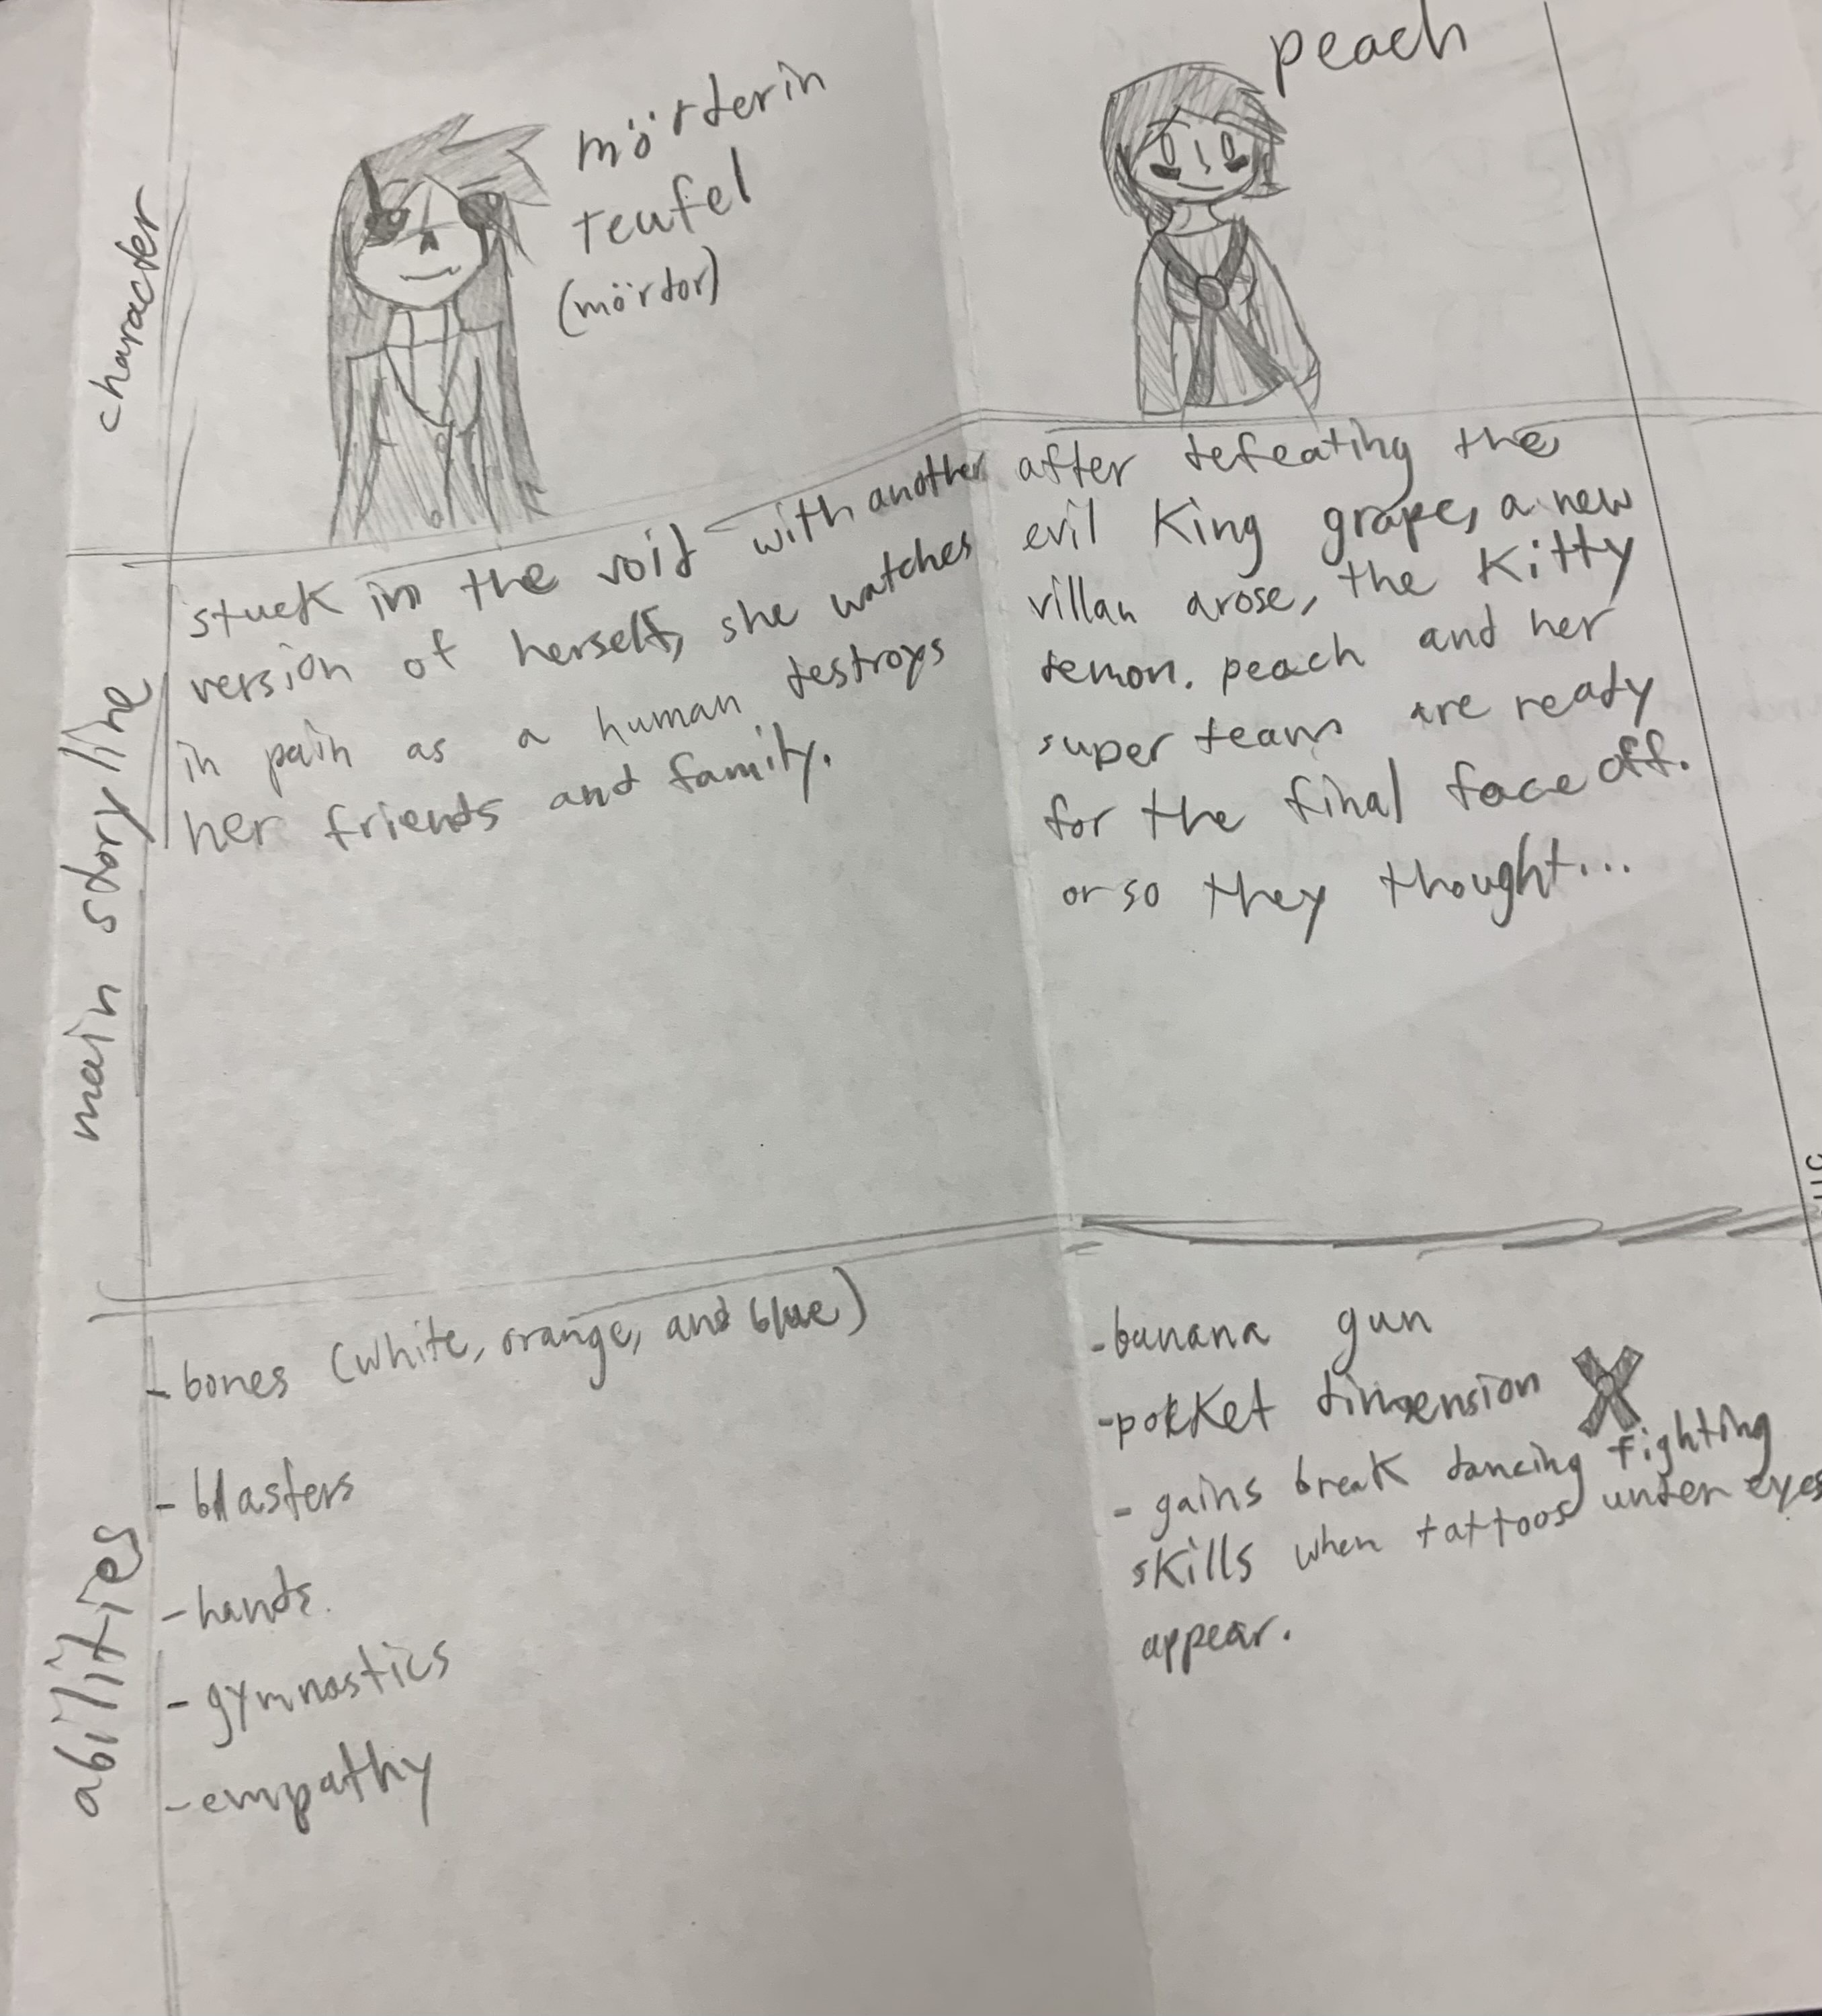 character
mörderin
teufel
(mördor)
peach
main storyline
stuck in the void with another
version of herself, she watches
in pain as a human destroys
her friends and family.
after defeating the
evil King grape, a new
villan arose, the Kitty
demon. peach and her
super team are ready
for the final face off.
or so they thought...
abilities
-bones (white, orange, and blue)
-blasters
-hands.
-gymnastics
-empathy
-banana gun
-pokket dimension
-gains break dancing fighting
skills when tattoos under eyes
appear.